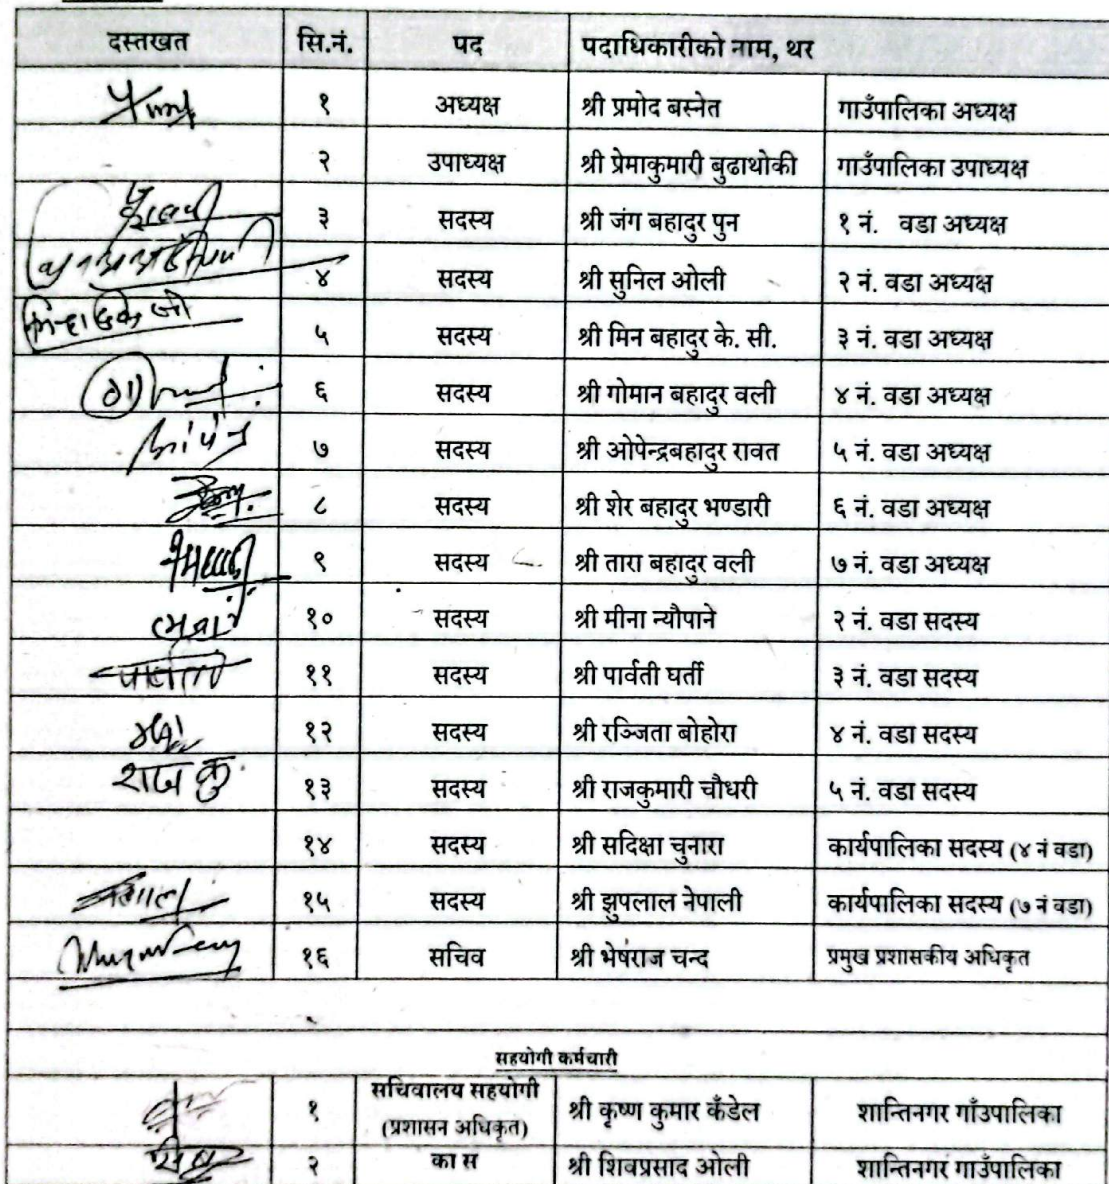 दस्तखत सि.नं. पद पदाधिकारीको नाम, थर
१ अध्यक्ष श्री प्रमोद बस्नेत गाउँपालिका अध्यक्ष
२ उपाध्यक्ष श्री प्रेमाकुमारी बुढाथोकी गाउँपालिका उपाध्यक्ष
३ सदस्य श्री जंग बहादुर पुन १ नं. वडा अध्यक्ष
४ सदस्य श्री सुनिल ओली २ नं. वडा अध्यक्ष
५ सदस्य श्री मिन बहादुर के. सी. ३ नं. वडा अध्यक्ष
६ सदस्य श्री गोमान बहादुर वली ४ नं. वडा अध्यक्ष
७ सदस्य श्री ओपेन्द्रबहादुर रावत ५ नं. वडा अध्यक्ष
८ सदस्य श्री शेर बहादुर भण्डारी ६ नं. वडा अध्यक्ष
९ सदस्य श्री तारा बहादुर वली ७ नं. वडा अध्यक्ष
१० सदस्य श्री मीना न्यौपाने २ नं. वडा सदस्य
११ सदस्य श्री पार्वती घर्ती ३ नं. वडा सदस्य
१२ सदस्य श्री रञ्जिता बोहोरा ४ नं. वडा सदस्य
राज कु १३ सदस्य श्री राजकुमारी चौधरी ५ नं. वडा सदस्य
१४ सदस्य श्री सदिक्षा चुनारा कार्यपालिका सदस्य (४ नं वडा)
१५ सदस्य श्री झुपलाल नेपाली कार्यपालिका सदस्य (७ नं वडा)
१६ सचिव श्री भेषराज चन्द प्रमुख प्रशासकीय अधिकृत
सहयोगी कर्मचारी
१ सचिवालय सहयोगी (प्रशासन अधिकृत) श्री कृष्ण कुमार कँडेल शान्तिनगर गाँउपालिका
२ का स श्री शिवप्रसाद ओली शान्तिनगर गाउँपालिका